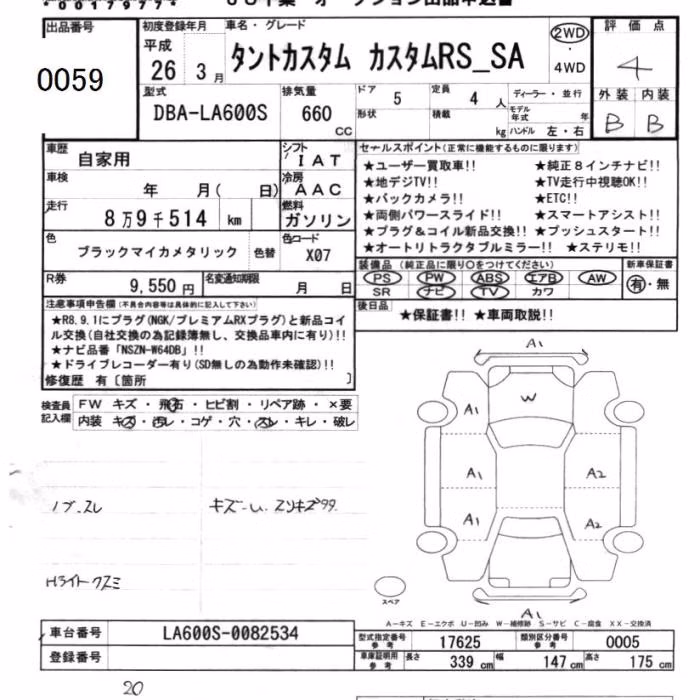 出品番号
0059
初度登録年月
平成
26 3月
車名・グレード
タントカスタム カスタムRS_SA
2WD
・
4WD
評価点
4
外装 内装
B B
型式
DBA-LA600S
排気量
660
CC
ドア
5
定員
4 人
ディーラー・並行
形状
積載
kg
モデル年式 年
ハンドル 左・右
車歴
自家用
シフト
IAT
車検
年 月( 日)
冷房
AAC
走行
8万9千514 km
燃料
ガソリン
色
ブラックマイカメタリック 色替
色コード
X07
R券
9,550円
名変通知期限
月 日
セールスポイント(正常に機能するものに限ります)
★ユーザー買取車!! ★純正8インチナビ!!
★地デジTV!! ★TV走行中視聴OK!!
★バックカメラ!! ★ETC!!
★両側パワースライド!! ★スマートアシスト!!
★プラグ&コイル新品交換!! ★プッシュスタート!!
★オートリトラクタブルミラー!! ★ステリモ!!
装備品(純正品に限り○をつけてください)
PS PW ABS エアB AW
SR ナビ TV カワ
新車保証書
有・無
後日品
★保証書!! ★車両取説!!
注意事項申告欄(不具合内容等は具体的に記入して下さい)
★R8.9.1にプラグ(NGK/プレミアムRXプラグ)と新品コイ
ル交換(自社交換の為記録簿無し、交換品車内に有り)!!
★ナビ品番「NSZN-W64DB」!!
★ドライブレコーダー有り(SD無しの為動作未確認)!!
修復歴 有〔箇所 〕
検査員
記入欄
FW キズ・飛石・ヒビ割・リペア跡・×要
内装 キズ・汚レ・コゲ・穴・スレ・キレ・破レ
ノブ-スレ
Hライトクスミ
A1
W
A1
A1 A2
A1 A2
A1
スペア
A-キズ E-エクボ U-凹み W-補修跡 S-サビ C-腐食 XX-交換済
車台番号
LA600S-0082534
登録番号
型式指定番号
参考
17625
類別区分番号
参考
0005
車庫証明用
参考
長さ 339 cm 幅 147 cm 高さ 175 cm
20